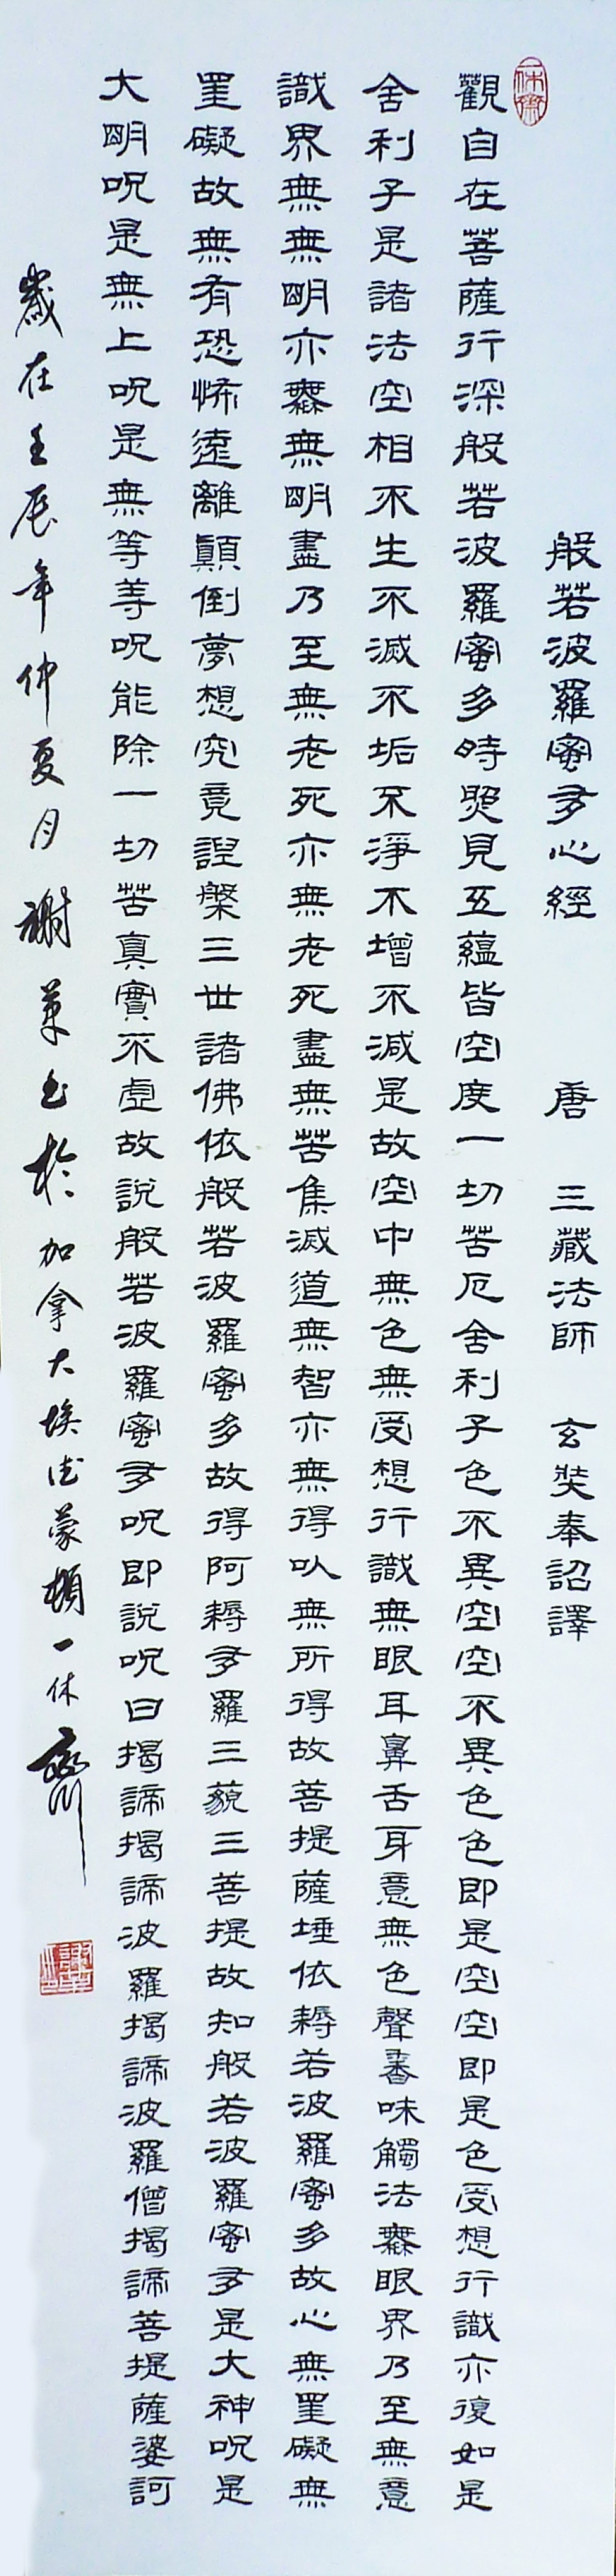 一休齋
般若波羅蜜多心經 唐 三藏法師 玄奘奉詔譯
觀自在菩薩行深般若波羅蜜多時照見五蘊皆空度一切苦厄舍利子色不異空空不異色色即是空空即是色受想行識亦復如是
舍利子是諸法空相不生不滅不垢不淨不增不減是故空中無色無受想行識無眼耳鼻舌身意無色聲香味觸法無眼界乃至無意
識界無無明亦無無明盡乃至無老死亦無老死盡無苦集滅道無智亦無得以無所得故菩提薩埵依耨若波羅蜜多故心無罣礙無
罣礙故無有恐怖遠離顛倒夢想究竟涅槃三世諸佛依般若波羅蜜多故得阿耨多羅三藐三菩提故知般若波羅蜜多是大神呪是
大明呪是無上呪是無等等呪能除一切苦真實不虛故說般若波羅蜜多呪即說呪曰揭諦揭諦波羅揭諦波羅僧揭諦菩提薩婆訶
歲在壬辰年仲夏月謝書於加拿大埃德蒙頓一休齋